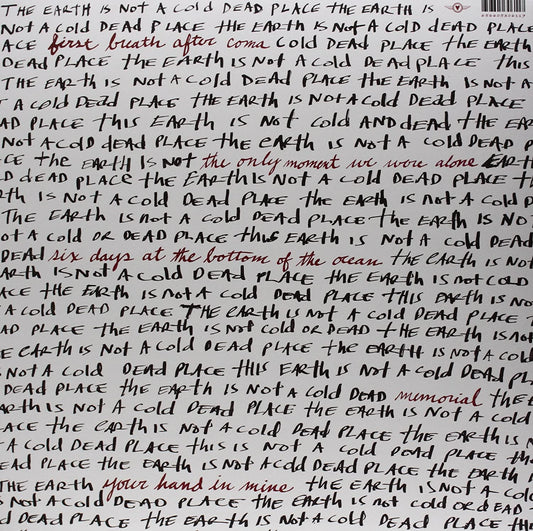 THE EARTH IS NOT A COLD DEAD PLACE THE EARTH IS
NOT A COLD DEAD PLACE THE EARTH IS NOT A COLD DEAD PLACE
ACE first breath after coma COLD DEAD PLACE THE EARTH
DEAD PLACE THE EARTH IS NOT A COLD DEAD PLACE THIS
THE EARTH IS NOT A COLD DEAD PLACE THE EARTH IS NOT A
A COLD DEAD PLACE THE EARTH IS NOT A COLD DEAD PLACE
AD PLACE THIS EARTH IS NOT COLD AND DEAD THE EAR
NOT A COLD DEAD PLACE THE EARTH IS NOT A COLD DEAD P
CE THE EARTH IS NOT the only moment we were alone EARTH
LD DEAD PLACE THE EARTH IS NOT A COLD DEAD PLACE T
TH IS NOT A COLD DEAD PLACE THE EARTH IS NOT A COLD D
THE EARTH IS NOT A COLD DEAD PLACE THE EARTH IS NO
OT A COLD OR DEAD PLACE THIS EARTH IS NOT A COLD
DEAD six days at the bottom of the ocean THE EARTH IS NOT
ARTH IS NOT A COLD DEAD PLACE THE EARTH IS NOT COLD
ACE THE EARTH IS NOT A COLD DEAD PLACE THIS EARTH IS NO
A COLD DEAD PLACE THE EARTH IS NOT A COLD DEAD PLACE
AD PLACE THE EARTH IS NOT COLD OR DEAD THE EARTH IS NOT
E EARTH IS NOT A COLD DEAD PLACE THE EARTH IS NOT A COL
NOT A COLD DEAD PLACE THIS EARTH IS NOT A COLD DEAD PL
DEAD PLACE THE EARTH IS NOT A COLD DEAD memorial THE E
ARTH IS NOT A COLD DEAD PLACE THE EARTH IS NOT A COLD
ACE THE EARTH IS NOT A COLD DEAD PLACE THE EARTH IS N
A COLD DEAD PLACE THIS IS NOT A COLD DEAD PLACE THE
EAD PLACE THE EARTH IS NOT A COLD DEAD PLACE THE EARTH I
THE EARTH your hand in mine THE EARTH IS NOT A COLD
S NOT A COLD DEAD PLACE THE EARTH IS NOT COLD OR DEAD
D DEAD PLACE THE EARTH IS NOT A COLD DEAD PLACE THE